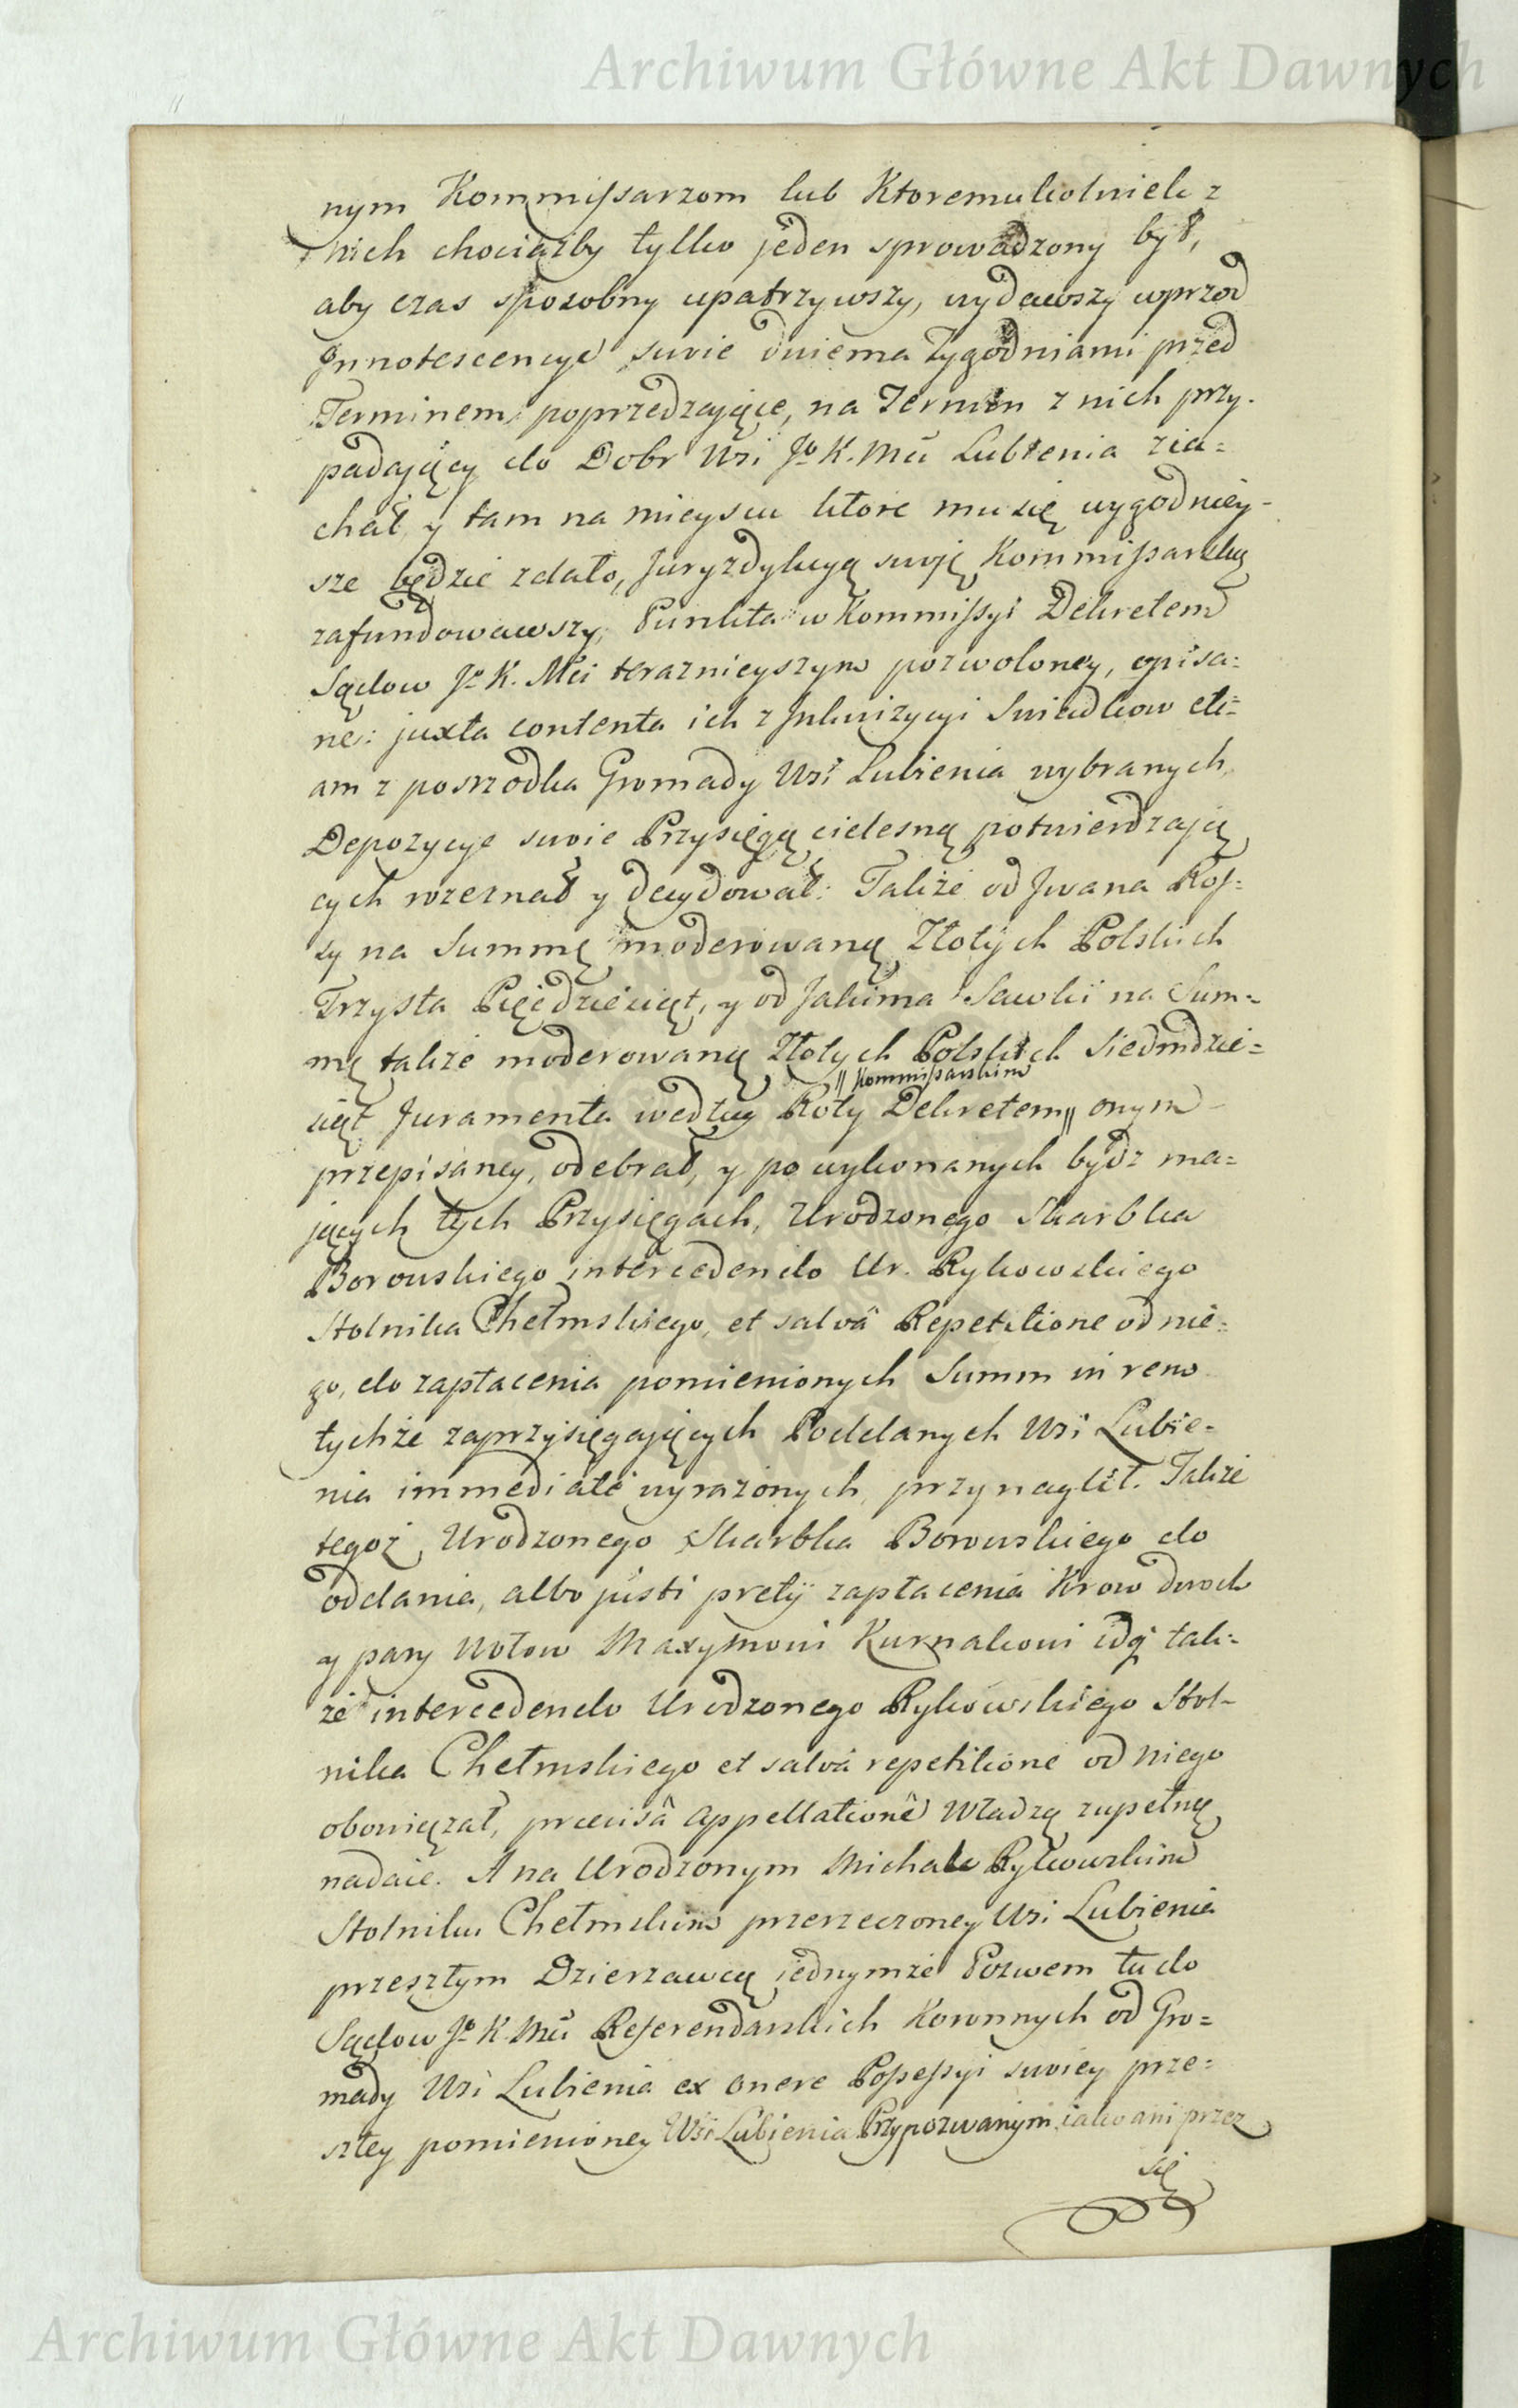 Archiwum Główne Akt Dawnych
nym Kommissarzom lub ktoremukolwiek z
nich chociażby tylko jeden sprowadzony był,
aby czas sposobny upatrzywszy, wydawszy wprzod
Innotescencye swoie dwiema tygodniami przed
Terminem poprzedzaiące, na Termin z nich przy-
padaiący do Dobr Wsi Jo K. Mci Lubienia zia=
chał, y tam na mieyscu ktore mu się wygodniey-
sze będzie zdało, Juryzdykcyą swoię Kommissarską
zafundowawszy, Punkta w Kommissyi Dekretem
Sądow Jo K. Mci teraznieyszym pozwoloney, opisa=
ne: juxta contenta ich z Inkwizycyi Swiadkow eti=
am z posrzodka Gromady Wsi Lubienia wybranych,
Depozycye swoie Przysięgą cielesną potwierdzaią
cych rozeznał y decydował: Także od Iwana Kos=
sy na Summę moderowaną Złotych Polskich
Trzysta Pięcdziesiąt, y od Jakima Sawki na Sum=
mę także moderowaną Złotych Polskich Siedmdzie=
|| Kommissarskim
siąt Juramenta według Roty Dekretem || onym
przepisaney, odebrał, y po wykonanych bydz ma=
jących tych Przysięgach, Urodzonego Skarbka
Borowskiego intercedendo Ur. Rykowskiego
Stolnika Chełmskiego, et salvâ Repetitione od nie=
go, do zapłacenia pomienionych Summ in rem
tychże zaprzysięgaiących Poddanych Wsi Lubie=
nia immediatè wyrażonych, przynaglił. Także
tegoż Urodzonego Skarbka Borowskiego do
oddania, albo justi pretij zapłacenia Krow dwoch
y pary Wołow Maxymowi Kurnakowi idq tak=
że intercedendo Urodzonego Rykowskiego Stol-
nika Chełmskiego et salvâ repetitione od niego
obowiązał, praecisâ appellatione Władzę zupełną
nadaie. A na Urodzonym Michale Rykowskim
Stolniku Chełmskim przerzeczoney Wsi Lubienia
przeszłym Dzierzawcą iednymże Pozwem tu do
Sądow Jo K. Mci Referendarskich Koronnych od Gro=
mady Wsi Lubienia ex onere Possessyi swoiey prze=
szłey pomienioney Wsi Lubienia Przypozwanym, iako ani przez
się
Archiwum Główne Akt Dawnych